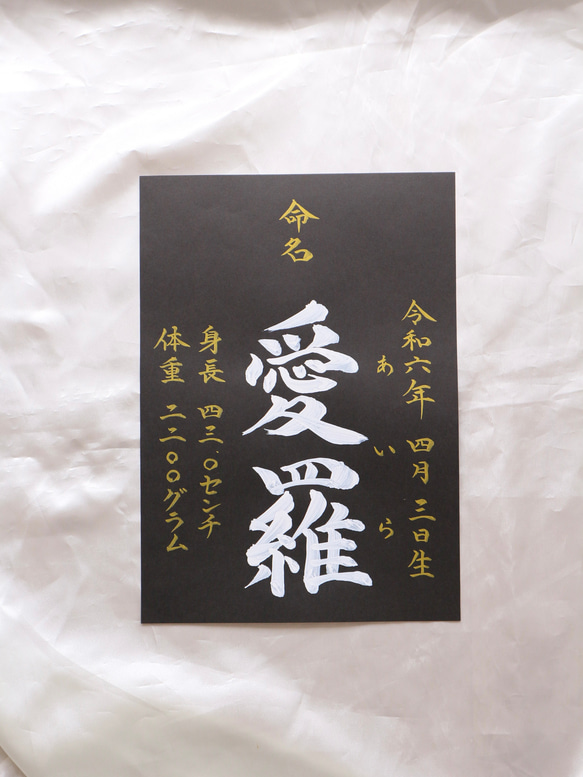 命名
令和六年 四月三日生
あいら
愛羅
身長 四三.〇センチ
体重 二二〇〇グラム